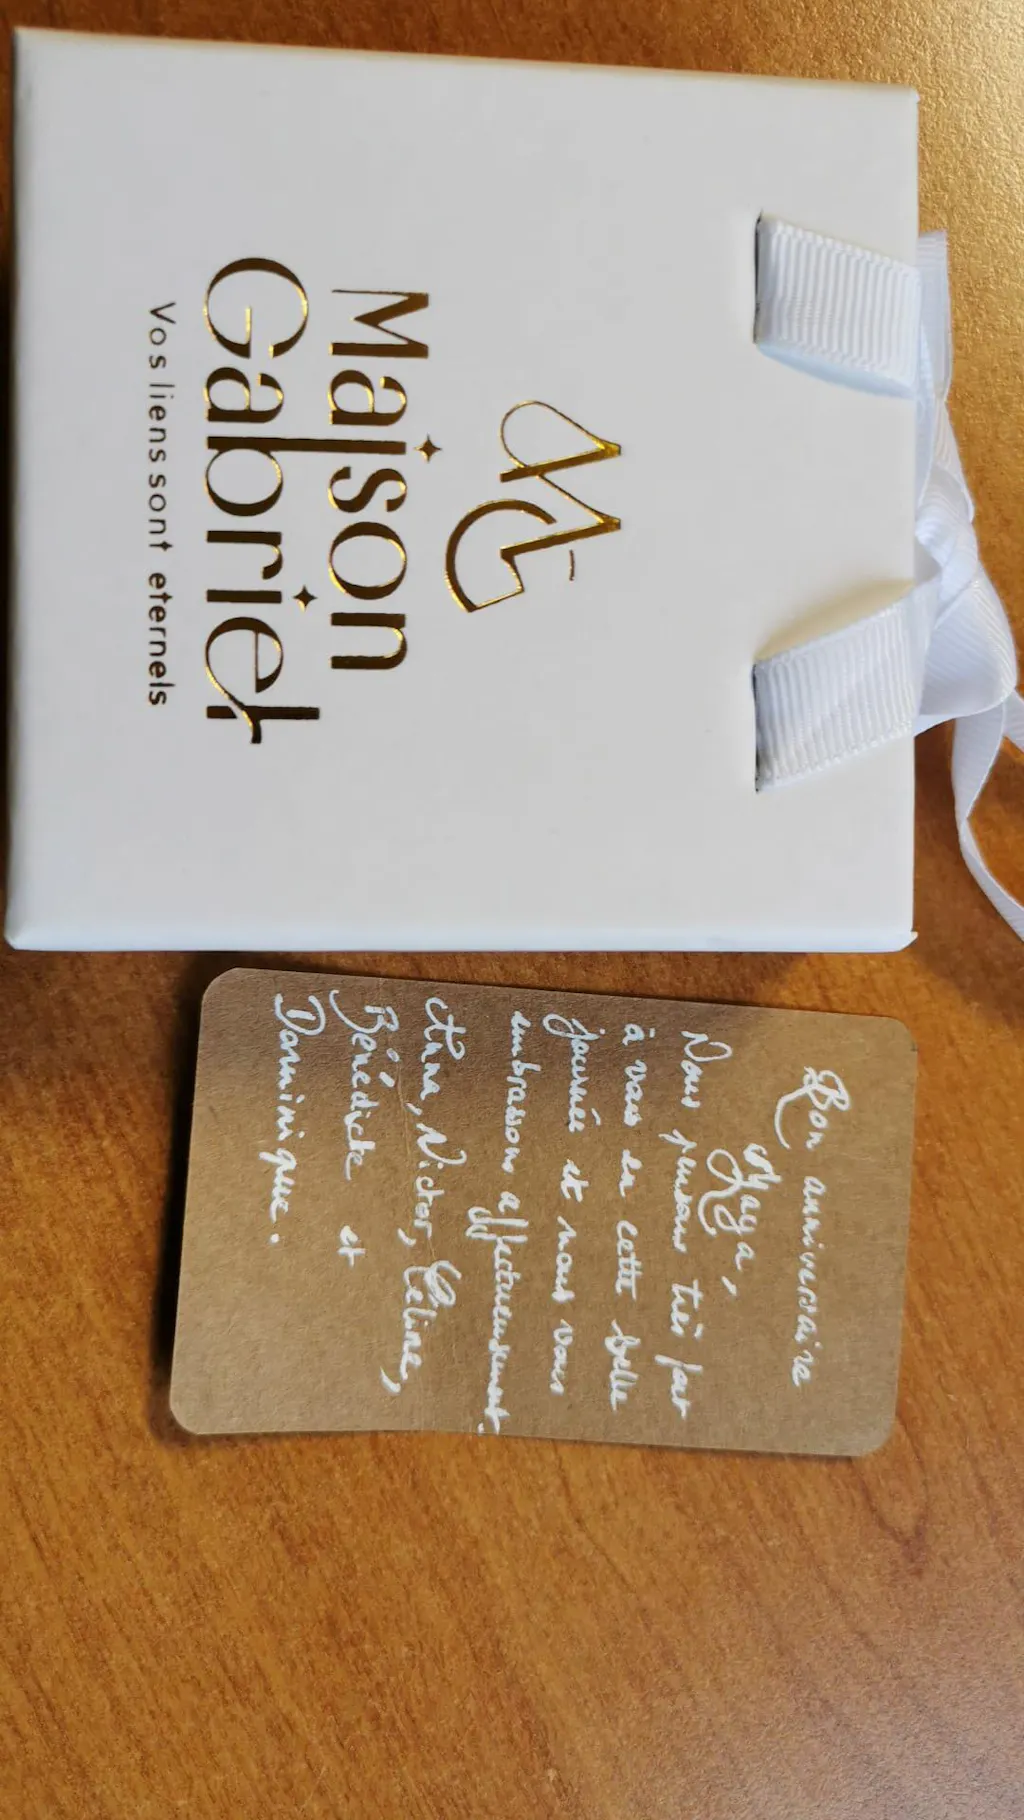 Maison
Gabriel
Vos liens sont eternels
Bon anniversaire
Maya,
Nous pensons très fort
à vous en cette belle
journée et nous vous
embrassons affectueusement.
Anna, Victor, Céline,
Bénédicte et
Dominique.